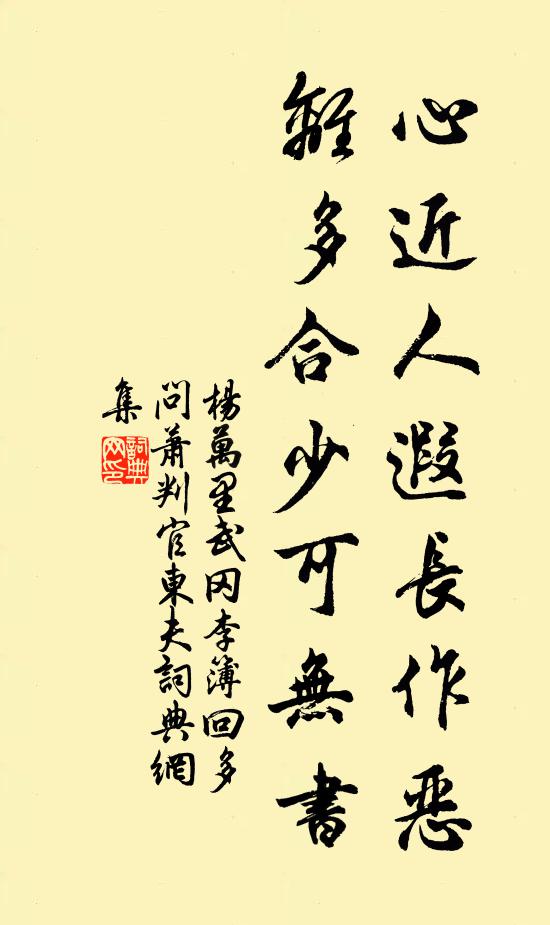 心近人遐長作惡
離多合少可無書
楊萬里武冈李簿回多
問蕭判官東夫詞典網
集
詞典網印